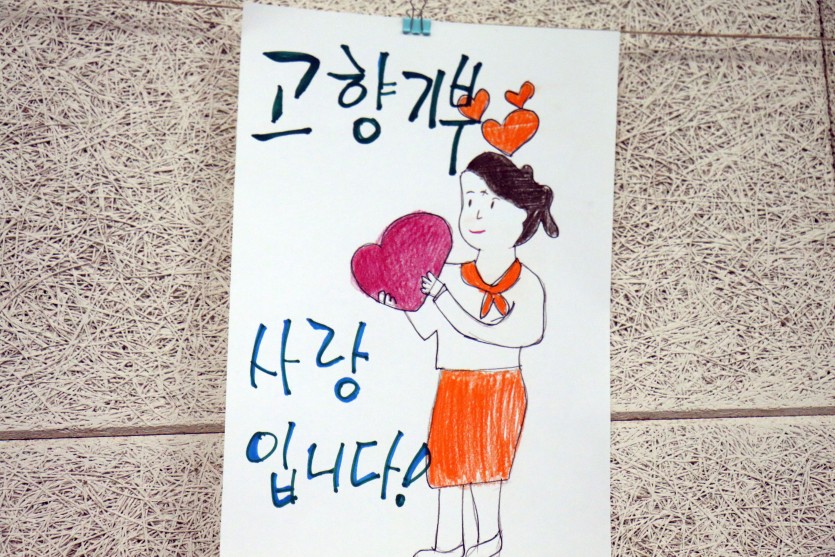 고향기부
사랑
입니다!